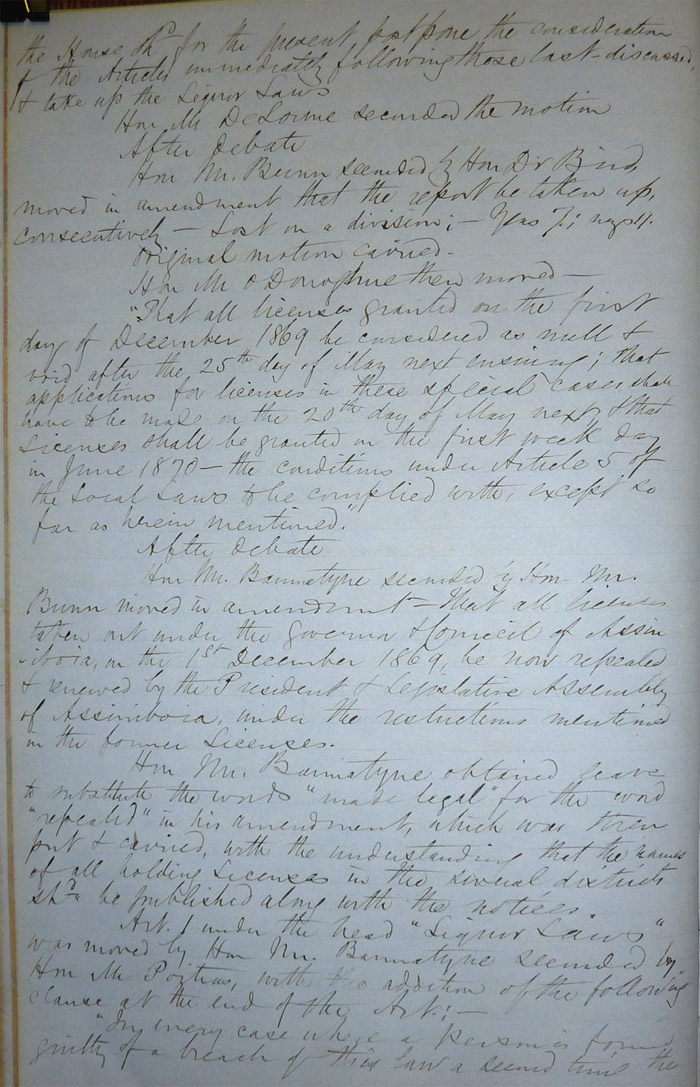 the House shd for the present postpone the consideration
of the Articles immediately following those last discussed,
& take up the Liquor Laws
Hon Mr DeLorme seconded the motion
After debate
Hon Mr. Bunn seconded by Hon Dr Bird,
moved in amendment that the report be taken up,
consecutively – Lost on a division; – Yeas 7; nays 11.
Original motion carried.
Hon Mr O'Donoghue then moved –
"That all licenses granted on the first
day of December 1869 be considered as null &
void after the 25th day of May next ensuing; that
applications for licenses in these special cases shall
have to be made on the 20th day of May next, & that
Licenses shall be granted on the first week day
in June 1870 – the conditions under Article 5 of
the Local Laws to be complied with, except so
far as herein mentioned."
After debate
Hon Mr. Bannatyne seconded by Hon. Mr.
Bunn moved in amendment – That all licenses
taken out under the Governor & Council of Assin
iboia, on the 1st December 1869, be now repealed
& renewed by the President & Legislative Assembly
of Assiniboia, under the restrictions mentioned
in the former Licenses.
Hon Mr. Bannatyne obtained leave
to substitute the words "made legal" for the word
"repealed" in his amendment, which was then
put & carried, with the understanding that the names
of all holding Licenses in the several districts
shd be published along with the notices.
Art. 1 under the head "Liquor Laws"
was moved by Hon Mr. Bannatyne seconded by
Hon Mr Poitras, with the addition of the following
clause at the end of the Art; –
"In every case where a person is found
guilty of a breach of this law a second time the